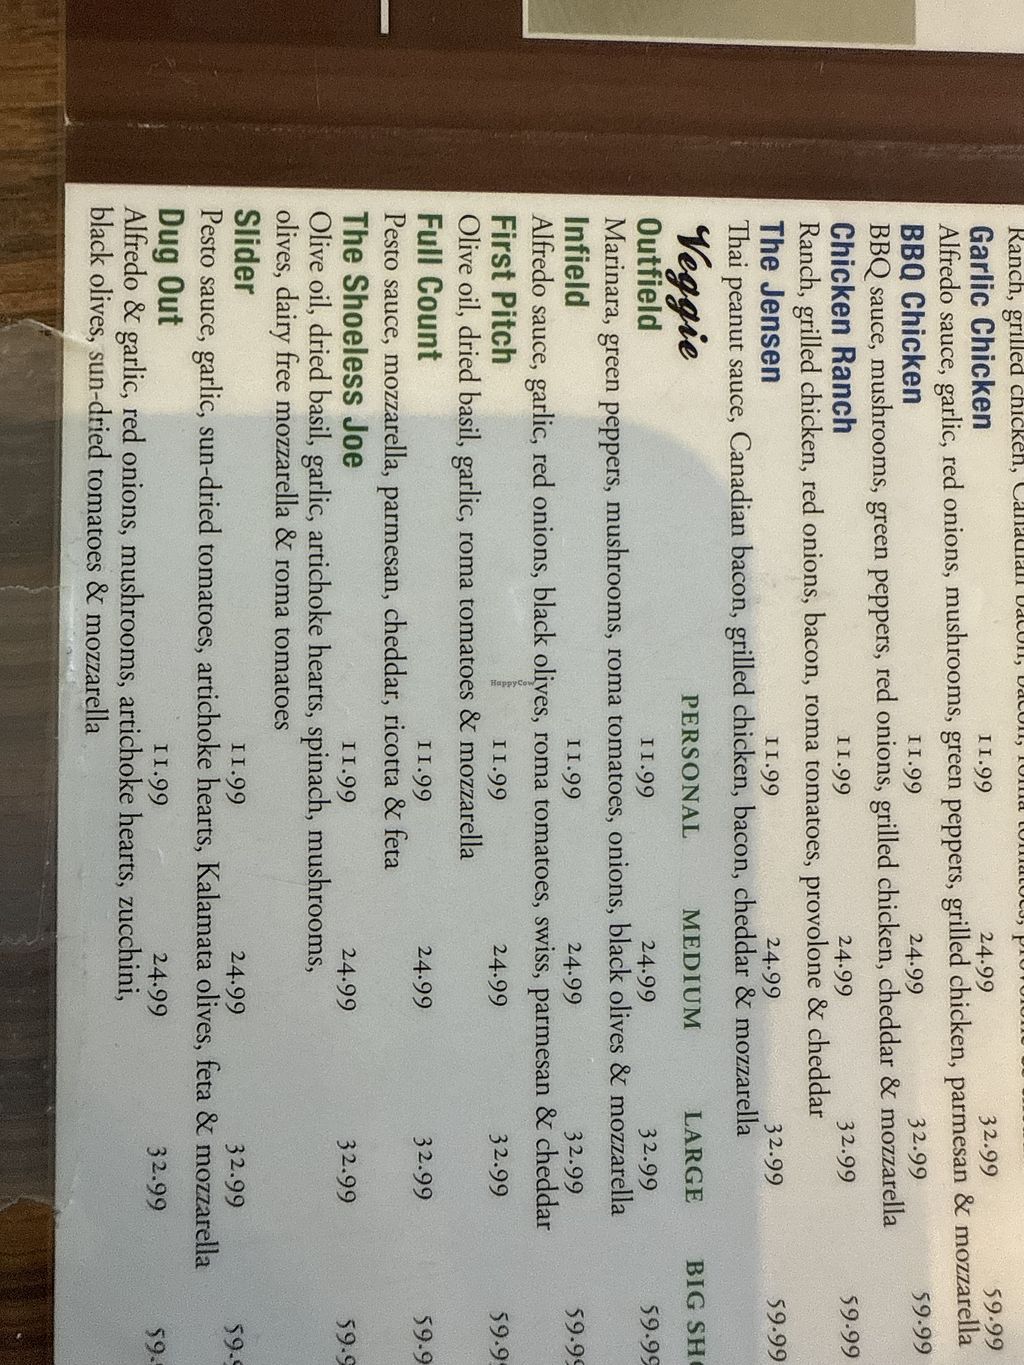 Ranch, grilled chicken, Canadian bacon, bacon, roma tomatoes,
Garlic Chicken 11.99 24.99 32.99 59.99
Alfredo sauce, garlic, red onions, mushrooms, green peppers, grilled chicken, parmesan & mozzarella
BBQ Chicken 11.99 24.99 32.99 59.99
BBQ sauce, mushrooms, green peppers, red onions, grilled chicken, cheddar & mozzarella
Chicken Ranch 11.99 24.99 32.99 59.99
Ranch, grilled chicken, red onions, bacon, roma tomatoes, provolone & cheddar
The Jensen 11.99 24.99 32.99 59.99
Thai peanut sauce, Canadian bacon, grilled chicken, bacon, cheddar & mozzarella
Veggie PERSONAL MEDIUM LARGE BIG
Outfield 11.99 24.99 32.99 59.99
Marinara, green peppers, mushrooms, roma tomatoes, onions, black olives & mozzarella
Infield 11.99 24.99 32.99 59.99
Alfredo sauce, garlic, red onions, black olives, roma tomatoes, swiss, parmesan & cheddar
First Pitch 11.99 24.99 32.99 59.9
Olive oil, dried basil, garlic, roma tomatoes & mozzarella
Full Count 11.99 24.99 32.99 59.9
Pesto sauce, mozzarella, parmesan, cheddar, ricotta & feta
The Shoeless Joe 11.99 24.99 32.99 59.9
Olive oil, dried basil, garlic, artichoke hearts, spinach, mushrooms,
olives, dairy free mozzarella & roma tomatoes
Slider 11.99 24.99 32.99 59.9
Pesto sauce, garlic, sun-dried tomatoes, artichoke hearts, Kalamata olives, feta & mozzarella
Dug Out 11.99 24.99 32.99 59.
Alfredo & garlic, red onions, mushrooms, artichoke hearts, zucchini,
black olives, sun-dried tomatoes & mozzarella
HappyCow